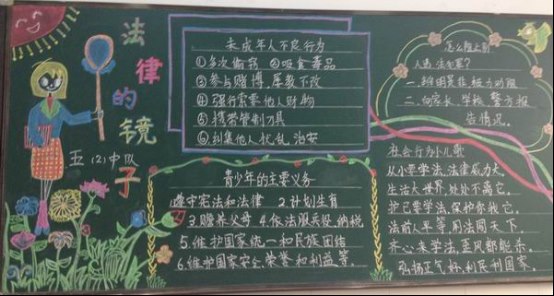 法律的镜子
五(2)中队
未成年人不良行为
①多次偷窃 ②吸食毒品
③参与赌博,屡教不改
④强行索要他人财物
⑤携带管制刀具
⑥纠集他人扰乱治安
青少年的主要义务
遵守宪法和法律 2.计划生育
3.赡养父母 4.依法服兵役 纳税
5.维护国家统一和民族团结
6.维护国家安全、荣誉和利益等。
怎么阻止别
人违法犯罪?
一、
二、向家长、学校、警方报
告情况。
社会行为小儿歌
从小要学法,法律威力大。
生活大世界,处处不离它。
护它要学法,保护你我它。
法前人平等,用法闯天下。
齐心来学法,
弘扬正气好,利民利国家。